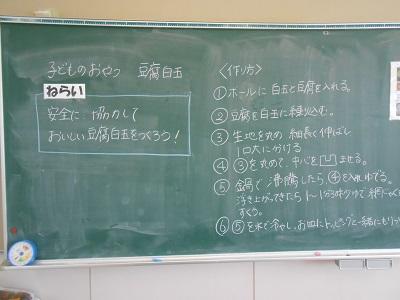 子どものおやつ 豆腐白玉
ねらい
安全に 協力して
おいしい豆腐白玉をつくろう!
〈作り方〉
①ホールに白玉と豆腐を入れる。
②豆腐を白玉に練り込む。
③生地を丸め 細長く伸ばし
1口大に分ける
④③を丸めて、中心を凹ませる。
⑤鍋で沸騰したら、④を入れゆでる。
浮き上がってきたら 1〜1分半ゆで
すくう。
⑥⑤を水で冷やし、お皿にトッピングと一緒にもり